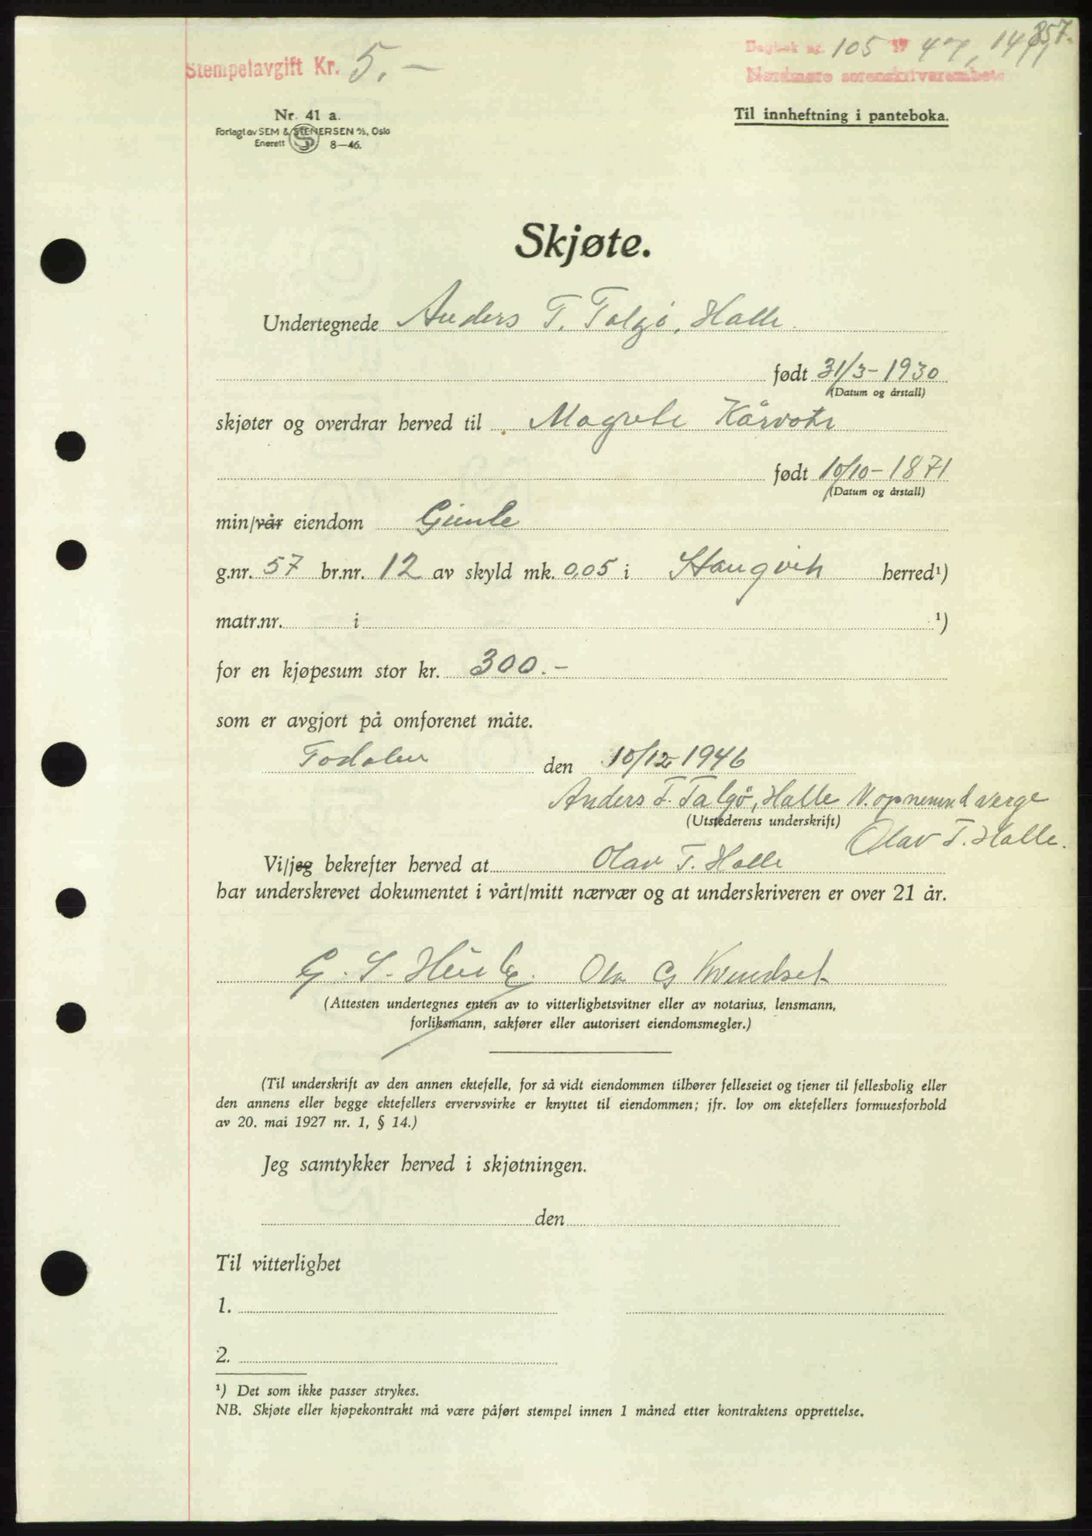 857.
Dagbok nr. 105 19 47, 14/1
Stempelavgift Kr. 5.–
Nordmøre sorenskrivarembete
Nr. 41 a.
Til innheftning i panteboka.
Forlagt av SEM & STENERSEN A/S, Oslo
Enerett 8—46.
Skjøte.
Undertegnede Anders T. Talgø, Halle.
født 31/3–1930
(Datum og årstall)
skjøter og overdrar herved til Magrete Kårvatn
født 10/10–1871
(Datum og årstall)
min/vår eiendom Gimle
g.nr. 57 br.nr. 12 av skyld mk. 0,05 i Stangvik herred¹)
matr.nr. i ¹)
for en kjøpesum stor kr. 300.–
som er avgjort på omforenet måte.
Todalen den 10/12–1946
Anders T. Talgø, Halle V. opnemnd verge
(Utstederens underskrift) Olav T. Halle.
Vi/jeg bekrefter herved at Olav T. Halle
har underskrevet dokumentet i vårt/mitt nærvær og at underskriveren er over 21 år.
G. S. Husby. Ola G Kvendset
(Attesten undertegnes enten av to vitterlighetsvitner eller av notarius, lensmann,
forliksmann, sakfører eller autorisert eiendomsmegler.)
(Til underskrift av den annen ektefelle, for så vidt eiendommen tilhører felleseiet og tjener til fellesbolig eller
den annens eller begge ektefellers ervervsvirke er knyttet til eiendommen; jfr. lov om ektefellers formuesforhold
av 20. mai 1927 nr. 1, § 14.)
Jeg samtykker herved i skjøtningen.
den
Til vitterlighet
1.
2.
¹) Det som ikke passer strykes.
NB. Skjøte eller kjøpekontrakt må være påført stempel innen 1 måned etter kontraktens opprettelse.